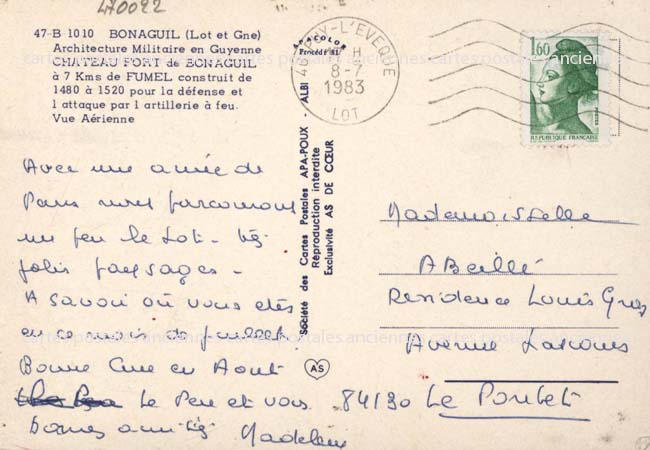 470022
47-B 1010 BONAGUIL (Lot et Gne)
Architecture Militaire en Guyenne
CHATEAU FORT de BONAGUIL
à 7 Kms de FUMEL construit de
1480 à 1520 pour la défense et
l attaque par l artillerie à feu.
Vue Aérienne
Avec une amie de
Paris nous parcourons
un peu le Lot - très
jolis paysages -
A savoir où vous êtes
en ce mois de juillet.
Bonne Cure en Aout
Le Pere et vous
bonnes amitiés Madeleine
Société des Cartes Postales APA-POUX - ALBI
Reproduction interdite
Exclusivité AS DE CŒUR
APACOLOR
Procédé 81
AS
PUY-L'EVEQUE
8-7
1983
LOT
1,60
POSTES
REPUBLIQUE FRANCAISE
Mademoiselle
Abeillé
Residence Louis Gros
Avenue Lascours
84130 Le Pontet
cartes postales anciennes cartes postales anciennes cartes postales anciennes